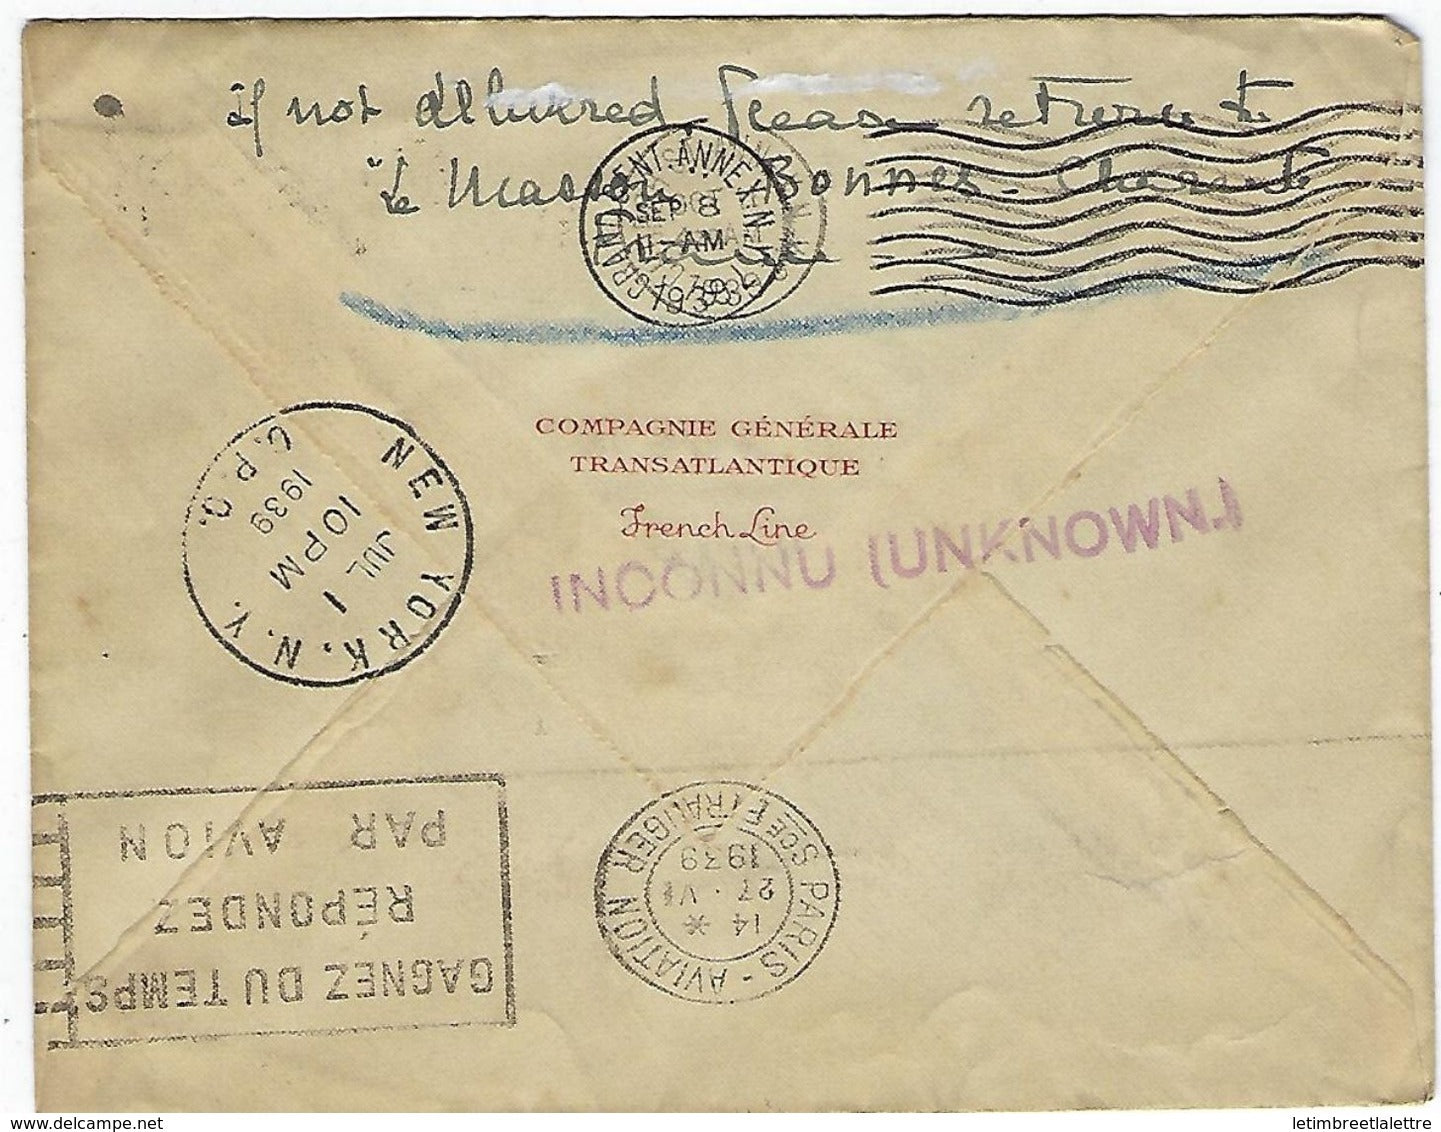 if not delivered please return to
"Le Masson Bonnes - Charente
GRAND CENT. ANNEX N.Y.
SEP 8
11-AM
1939
COMPAGNIE GÉNÉRALE
TRANSATLANTIQUE
French Line
INCONNU (UNKNOWN)
NEW YORK, N.Y.
JUL 1
10 PM
1939
G.P.O.
GAGNEZ DU TEMPS
RÉPONDEZ
PAR AVION
PARIS-AVIATION
Sce ETRANGER
14 *
27 · VI
1939
delcampe.net
letimbreetlalettre